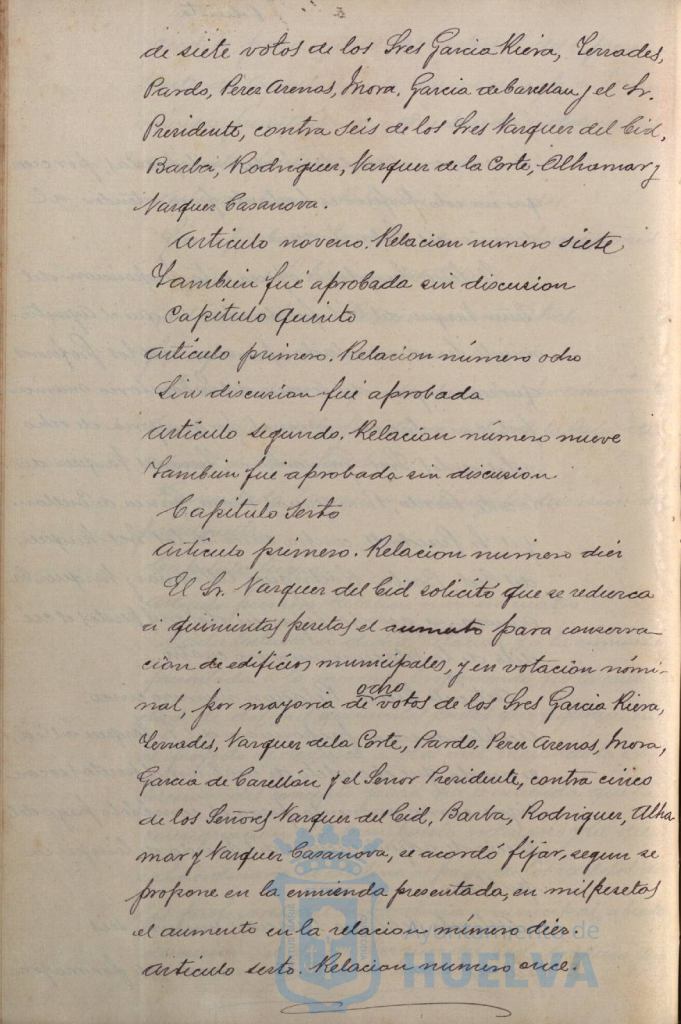 de siete votos de los Sres Garcia Riera, Terrades,
Pardo, Perez Arenas, Mora, Garcia de Carellan y el Sr.
Presidente, contra seis de los Sres Vazquez del Cid,
Barba, Rodriguez, Vazquez de la Corte, Alhamar y
Vazquez Casanova.
Articulo noveno. Relacion numero siete
Tambien fué aprobada sin discusion
Capitulo Quinto
Articulo primero. Relacion número ocho
Sin discusion fué aprobada
Articulo segundo. Relacion número nueve
Tambien fué aprobada sin discusion
Capitulo Sexto
Articulo primero. Relacion numero diez
El Sr. Vazquez del Cid solicitó que se reduzca
á quinientas pesetas el aumento para conserva-
cion de edificios municipales, y en votacion nómi-
ocho
nal, por mayoria de votos de los Sres Garcia Riera,
Terrades, Vazquez de la Corte, Pardo, Perez Arenas, Mora,
Garcia de Carellán y el Señor Presidente, contra cinco
de los Señores Vazquez del Cid, Barba, Rodriguez, Alha
mar y Vazquez Casanova, se acordó fijar, segun se
propone en la enmienda presentada, en mil pesetas
el aumento en la relacion número diez.
Articulo sexto. Relacion numero once.
Ayuntamiento de
HUELVA